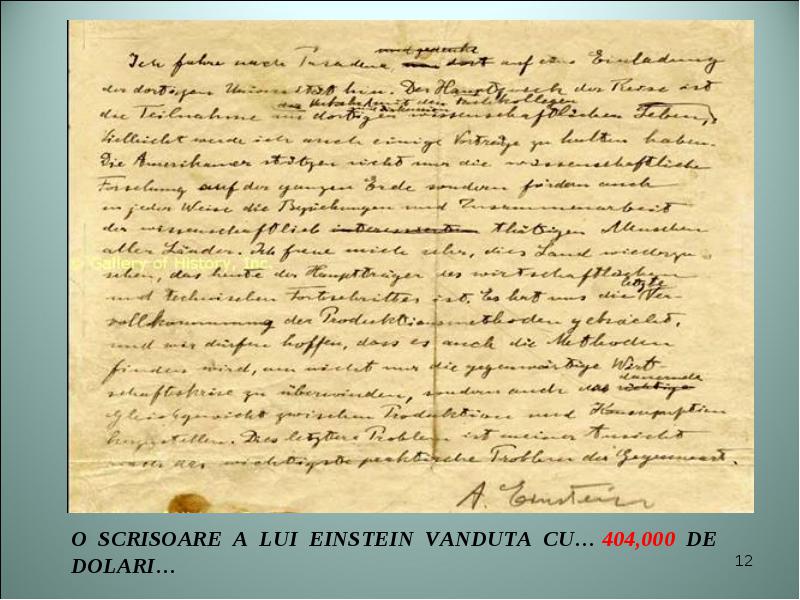 Ich fahre nach Pasadena und gedenke dort auf eine Einladung
der dortigen Universität hin. Der Hauptzweck der Reise ist
die Teilnahme am dortigen wissenschaftlichen Leben,
die Verbindung mit den Fachkollegen
Vielleicht werde ich auch einige Vorträge zu halten haben.
Die Amerikaner stützen nicht nur die wissenschaftliche
Forschung auf der ganzen Erde sondern fördern auch
in jeder Weise die Beziehungen und Zusammenarbeit
der wissenschaftlich interessierten thätigen Menschen
aller Länder. Ich freue mich sehr, dies Land wiederzu-
© Gallery of History, Inc.
sehen, das heute der Hauptträger des wirtschaftlichen
und technischen Fortschrittes ist. Es hat uns die letzte Ver-
vollkommnung der Produktionsmethoden gebracht,
und wir dürfen hoffen, dass es auch die Methoden
finden wird, um nicht nur die gegenwärtige Wirt-
schaftskrise zu überwinden, sondern auch das richtige dauernde
Gleichgewicht zwischen Produktion und Konsumption
herzustellen. Dies letztere Problem ist meiner Ansicht
nach das wichtigste praktische Problem der Gegenwart.
A. Einstein
O SCRISOARE A LUI EINSTEIN VANDUTA CU… 404,000 DE
DOLARI…
12